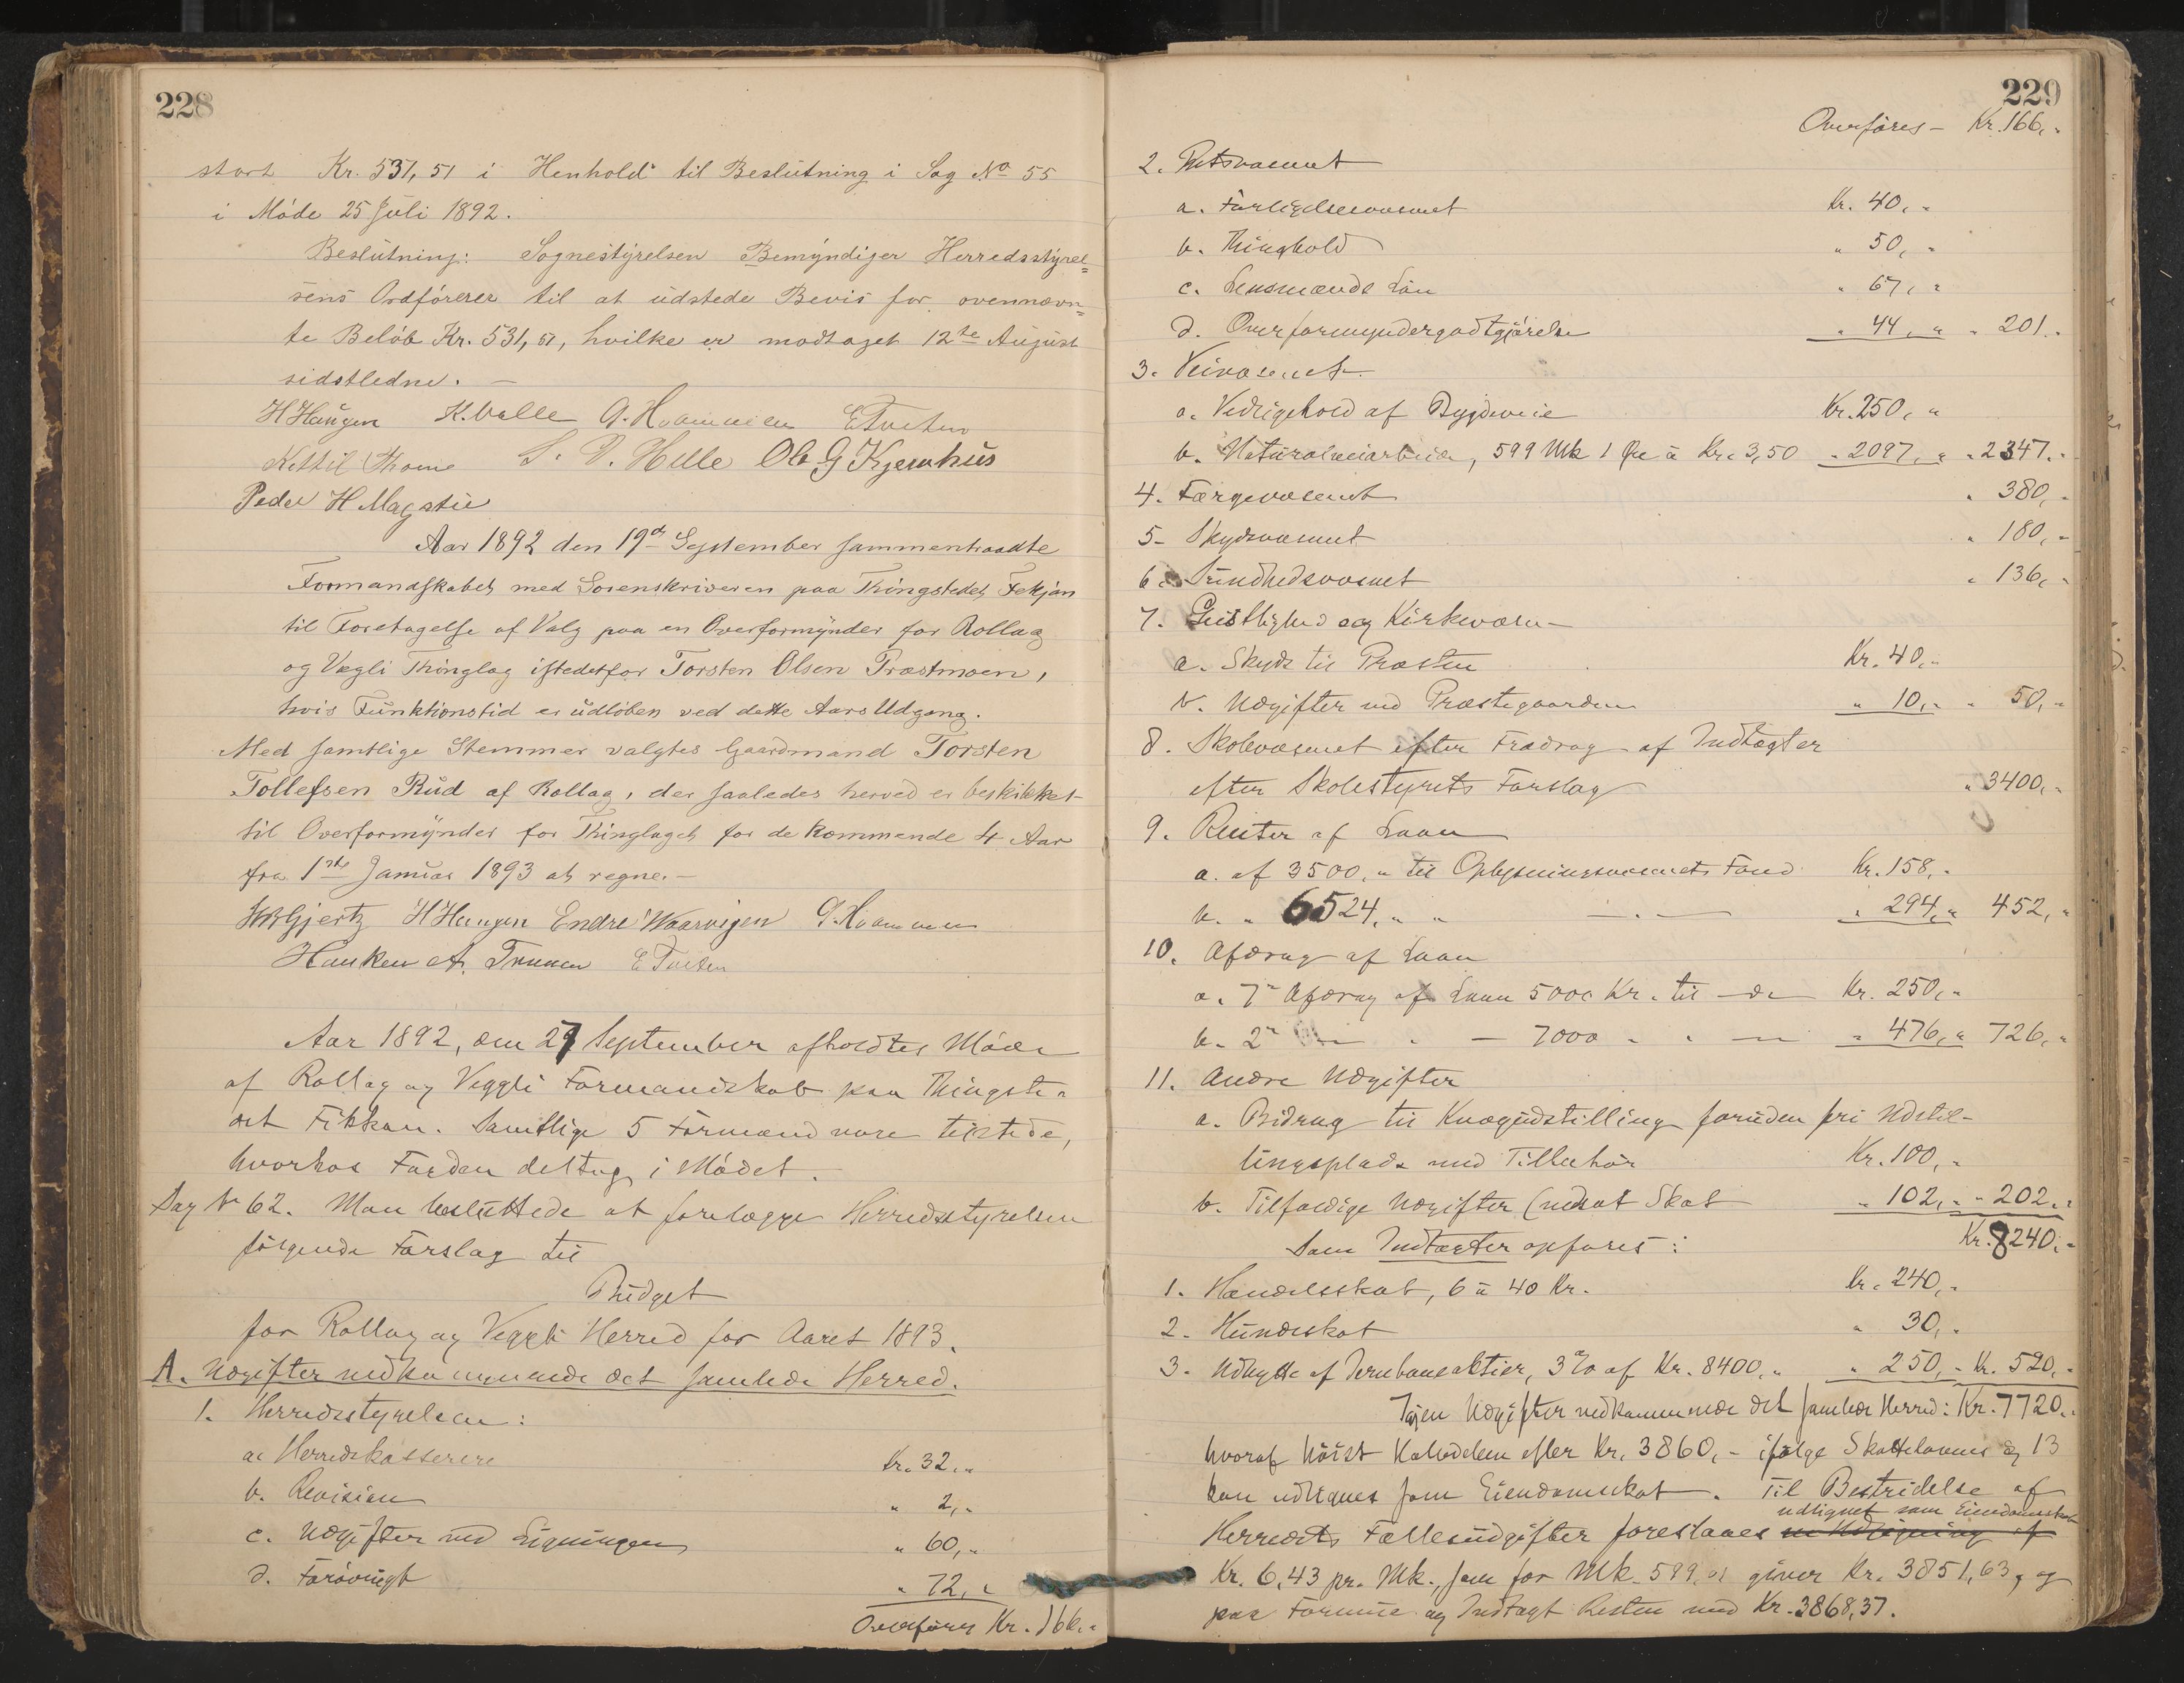 228
stort Kr. 531,51 i Henhold til Beslutning i Sag No 55
i Möde 25 Juli 1892.
Beslutning: Sognestyrelsen Bemyndiger Herredsstyrel=
sens Ordförerer til at udstede Bevis for ovennævn=
te Belöb Kr. 531,51, hvilke er modtaget 12te August
sidstledne. —
H Haugen K. Valle G. Hvammen E Tveten
Kittil Thome S. D. Helle Ole G Kjemhus
Peder H Magstie
Aar 1892 den 19de September sammentraadte
Formandskabet med Sorenskriveren paa Thingstedet Fekjan
til Foretagelse af Valg paa en Overformynder for Rollag
og Vægli Thinglag istedetfor Torsten Olsen Præstmoen,
hvis Funktionstid er udlöben ved dette Aars Udgang.
Med samtlige Stemmer valgtes Gaardmand Torsten
Tollefsen Rud af Rollag, der saaledes herved er beskikket
til Overformynder for Thinglaget for de kommende 4 Aar
fra 1ste Januar 1893 at regne. —
Gjertz H Haugen Endre Waarvigen G. Hvammen
E Tveten
Aar 1892, den 27 September afholdtes Möde
af Rollag og Veggli Formandskab paa Thingste-
det Fikkan. Samtlige 5 Formænd vare tilstede,
hvorhos Fogden deltog i Mödet.
Sag No 62. Man besluttede at forelægge Herredsstyrelsen
fölgende Forslag til
Budget
for Rollag og Veggli Herred for Aaret 1893.
A. Udgifter vedkommende det samlede Herred.
1. Herredsstyrelsen:
a. Herredskasserere Kr. 32,"
b. Revision " 2,"
c. Udgifter ved Ligningen " 60,"
d. Forövrigt " 72,"
Overföres Kr. 166,"
229
Overföres — Kr. 166,"
2. Retsvæsenet
a. Forligelsesvæsenet Kr. 40,"
b. Thinghold " 50,"
c. Lensmænds Lön " 67,"
d. Overformyndergodtgjörelse " 44," " 201,"
3. Veivæsenet
a. Vedligehold af Bygdeveie Kr. 250,"
b. Naturalveiarbeide, 599 Mk 1 Öre à Kr. 3,50 " 2097," " 2347,"
4. Færgevæsenet " 380,"
5. Skydsvæsenet " 180,"
6. Sundhedsvæsnet " 136,"
7. Geistlighed og Kirkevæsen
a. Skyds til Præsten Kr. 40,"
b. Udgifter ved Præstegaarden " 10," " 50,"
8. Skolevæsenet efter Fradrag af Indtægter
efter Skolestyrets Forslag " 3400,"
9. Renter af Laan
a. af 3500," til Oplysningsvæsenets Fond Kr. 158,"
b. " 6524," " — " — " 294," 452,"
10. Afdrag af Laan
a. 7de Afdrag af Laan 5000 Kr. til — do Kr. 250,"
b. 2det — " — 7000 " " — " 476," 726,"
11. Andre Udgifter
a. Bidrag til Kvægudstilling foruden fri Udstil-
lingsplads med Tilbehör Kr. 100,"
b. Tilfældige Udgifter (uerhol Skat " 102," " 202,"
Kr. 8240,"
Som Indtægter opföres:
1. Handelsskat, 6 à 40 Kr. Kr. 240,"
2. Hundeskat " 30,"
3. Udbytte af Jernbaneaktier, 3 % af Kr. 8400," " 250," Kr. 520,"
Igjen Udgifter vedkommende det samlede Herred: Kr. 7720,"
hvoraf höist Halvdelen eller Kr. 3860,- ifölge Skattelovens § 13
kan udlignes som Eiendomsskat. Til Bestridelse af
udlignet som Eiendomsskat
Herredets Fællesudgifter foreslaaes en Udligning af
Kr. 6,43 pr. Mk., som for Mk. 599,01 giver Kr. 3851,63, og
paa Formue og Indtægt Resten med Kr. 3868,37.